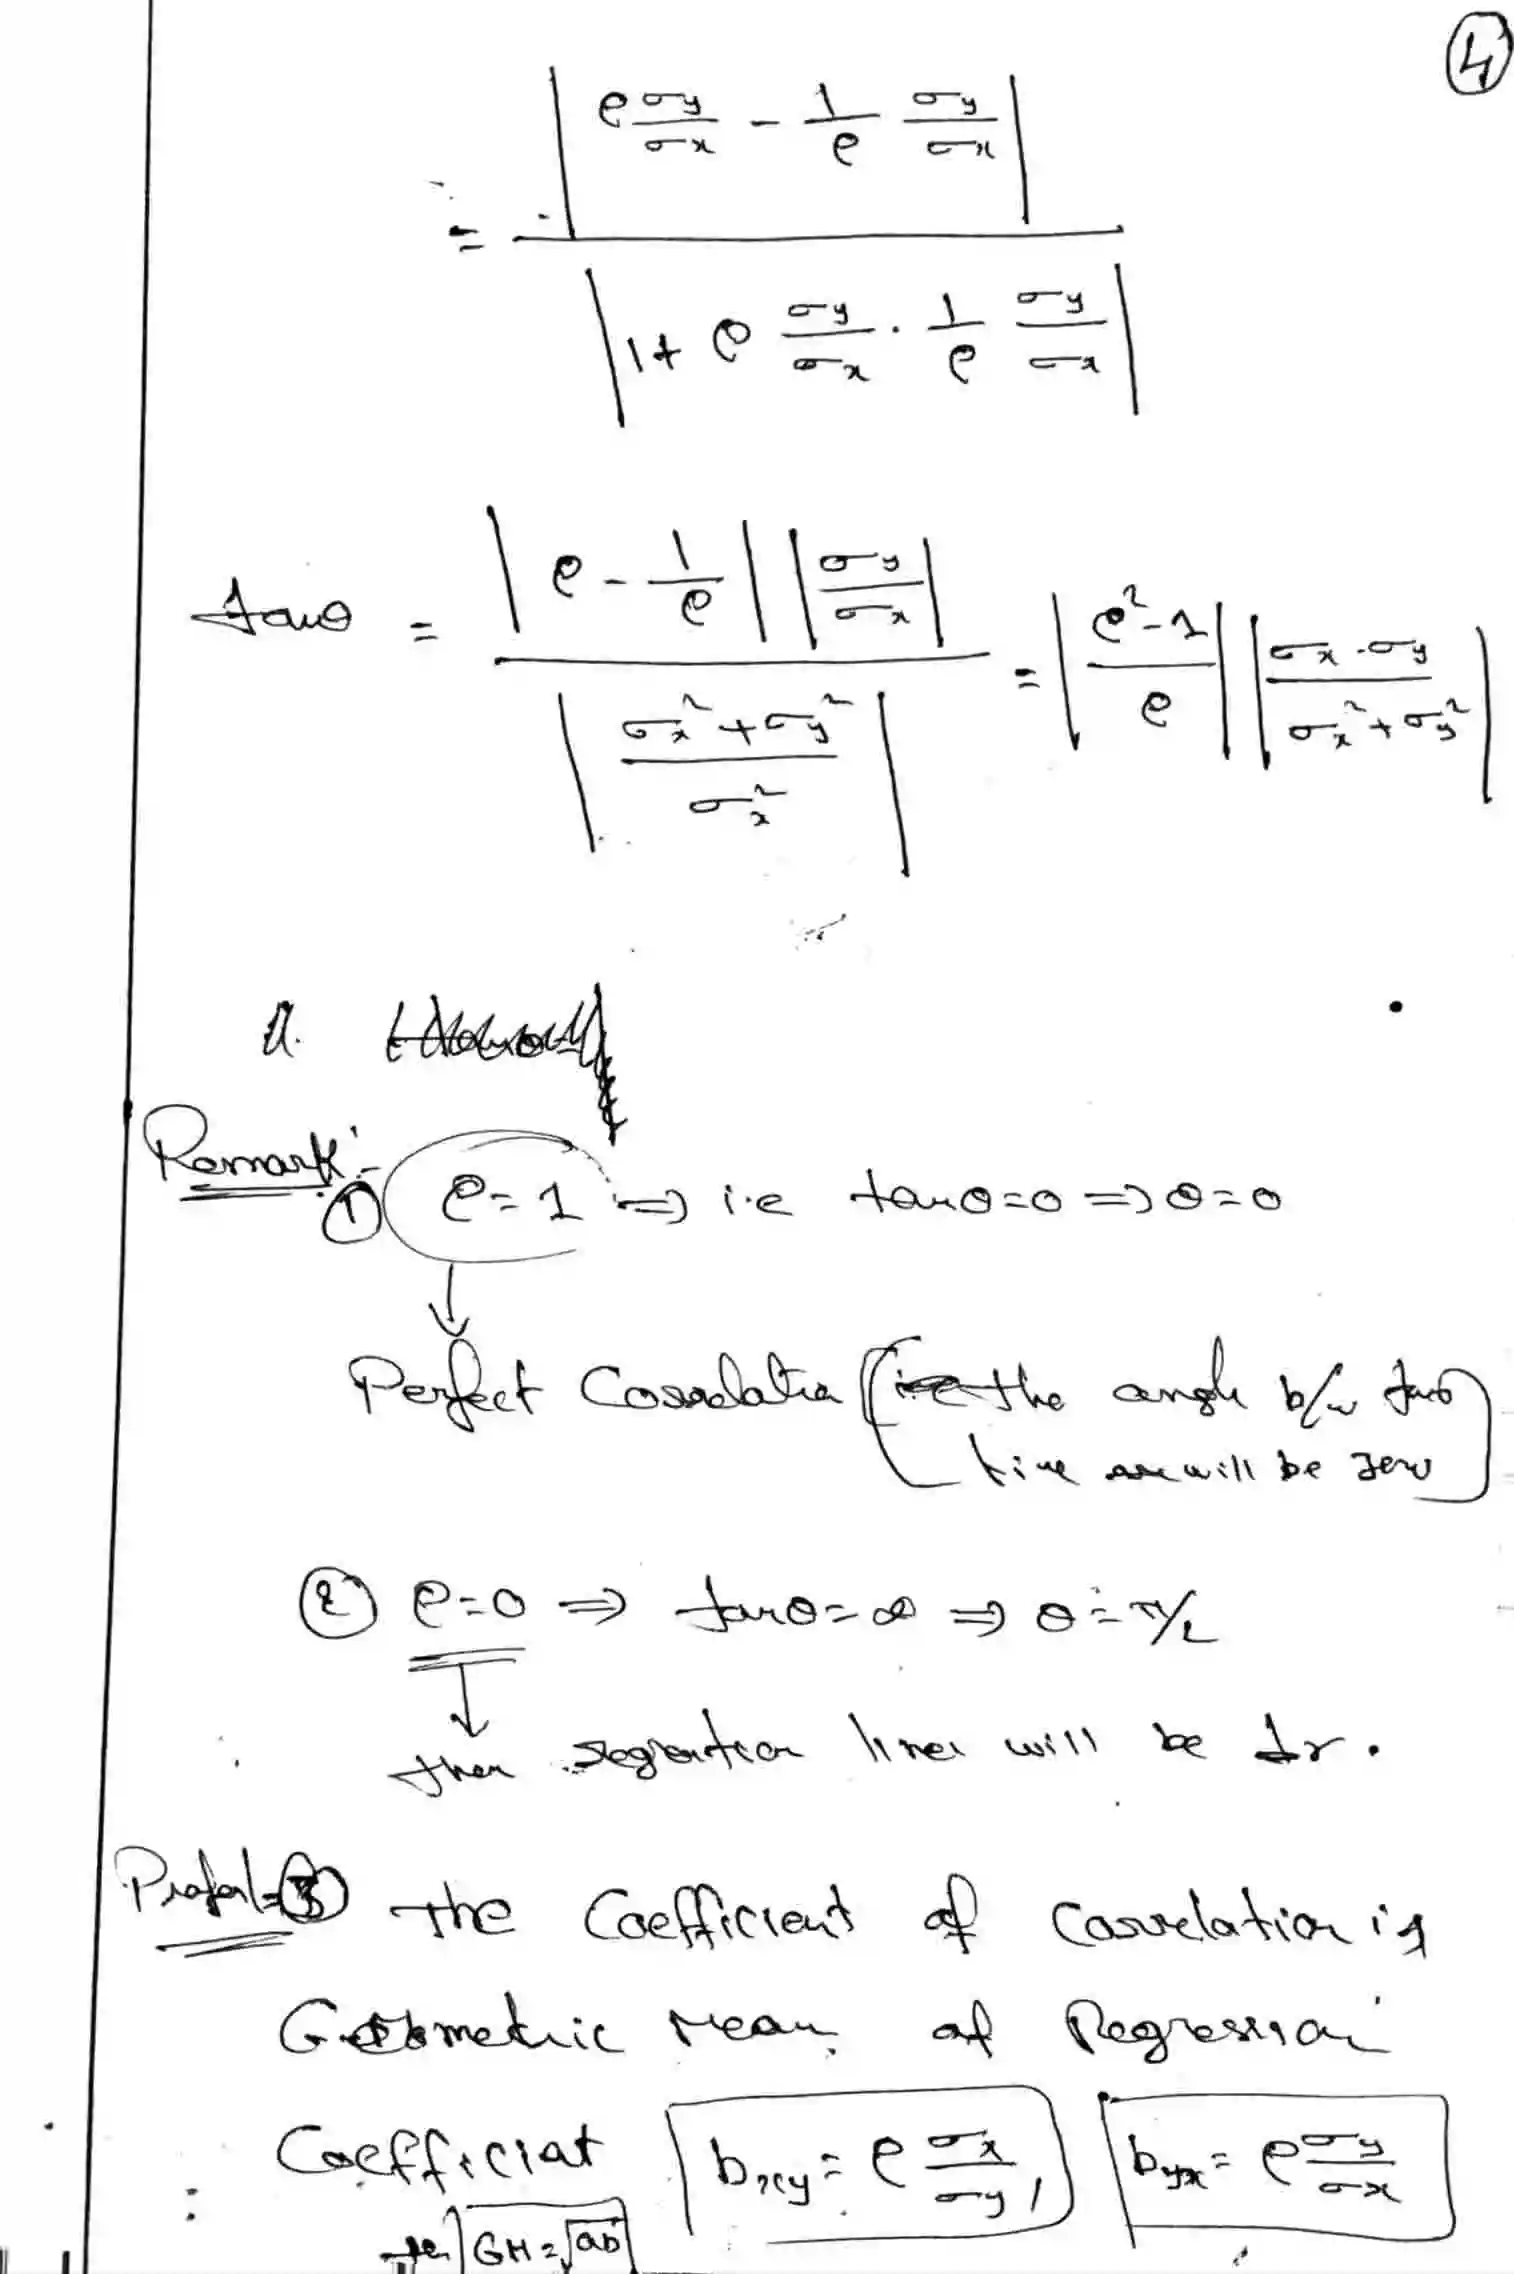 4
= |ρ σy/σx - 1/ρ σy/σx| / |1 + ρ σy/σx . 1/ρ σy/σx|
tanθ = |ρ - 1/ρ| |σy/σx| / |(σx² + σy²)/σx²| = |(ρ² - 1)/ρ| |σx . σy/(σx² + σy²)|
Remark:-
① ρ = 1 ⇒ i.e tanθ = 0 ⇒ θ = 0
↓
Perfect Correlation (the angle b/w two
line will be zero)
② ρ = 0 ⇒ tanθ = ∞ ⇒ θ = π/2
↓
then regression lines will be ⊥r.
③ The Coefficient of Correlation is
Geometric Mean of Regression
Coefficiat bxy = ρ σx/σy , byx = ρ σy/σx
GM = √ab